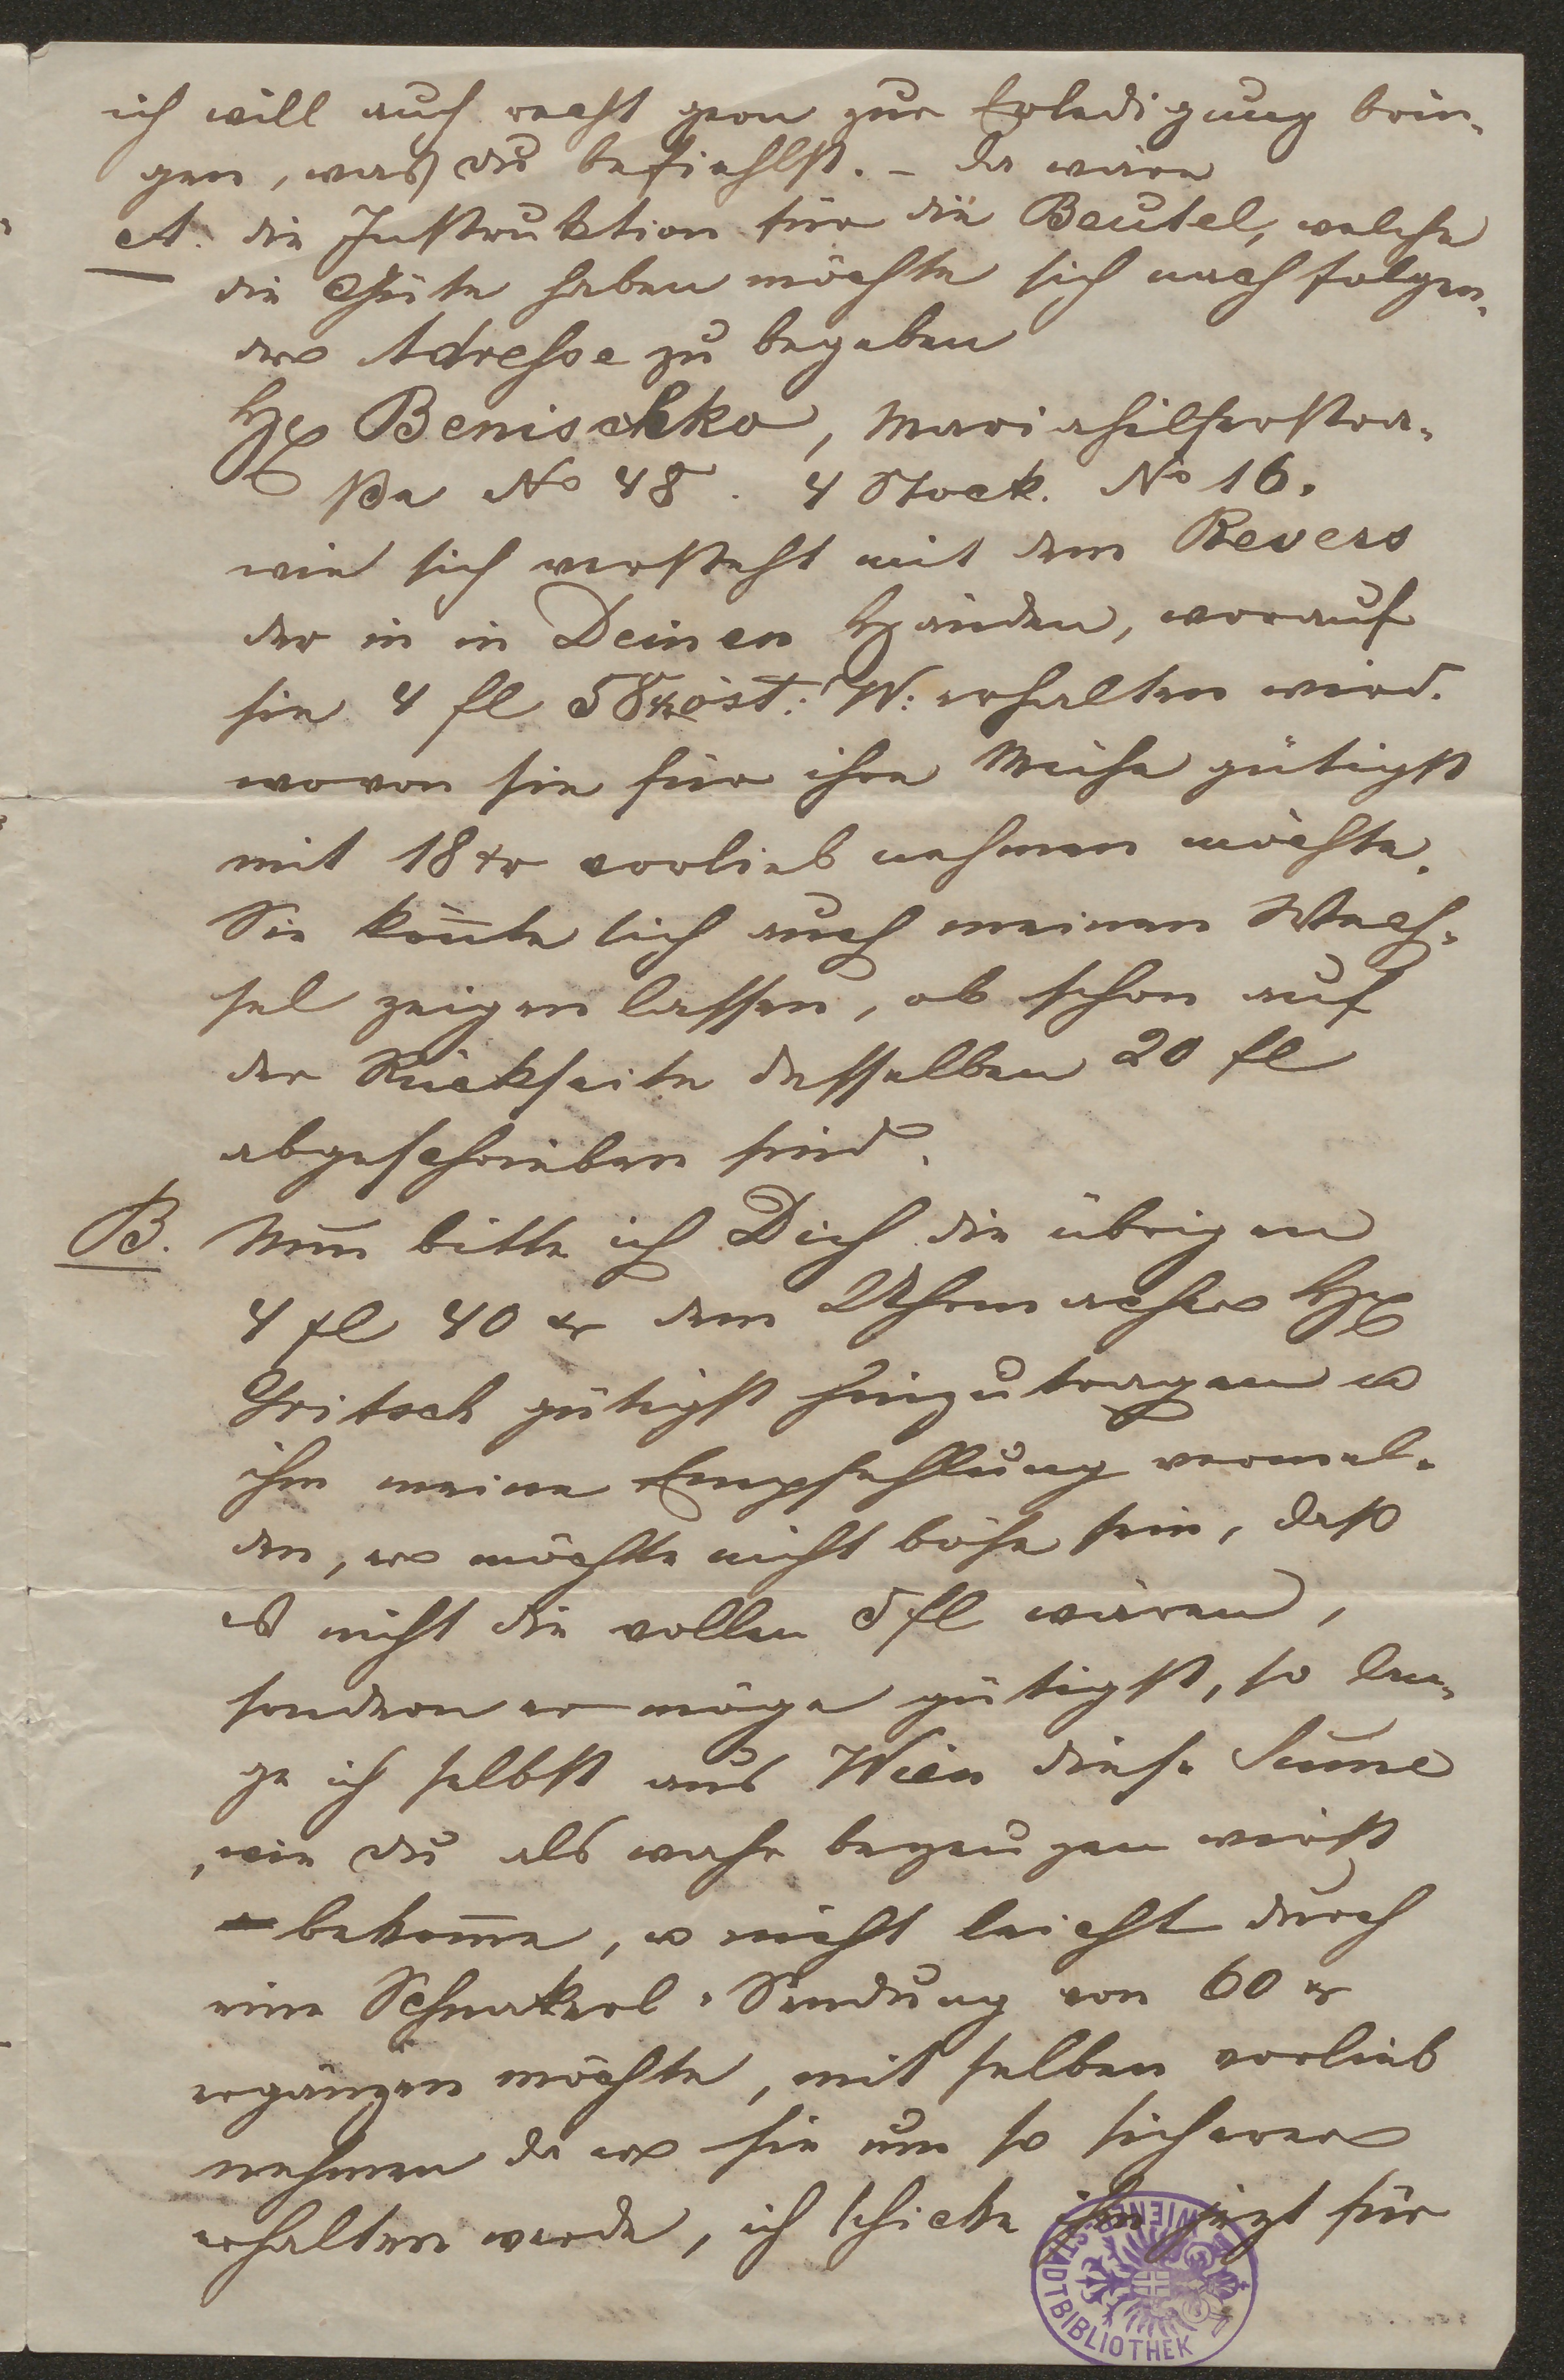 ich will auch recht gern zur Erledigung brin-
gen, was du befiehlst. – da wäre
A. die Instruktion für die Beutel, welche
die Güte haben möchte sich nach folgen-
der Adresse zu begeben
H: Benischko, Mariahilferstra-
ße No 48. 4 Stock. No 16.
wie sich versteht mit dem Revers
der in in Deinen Händen, worauf
sie 4 fl 58 kr öst: W: erhalten wird.
wovon sie für ihre Mühe gütigst
mit 18 kr vorlieb nehmen möchte.
Sie kön̄te sich auch meinen Wech-
sel zeigen lassen, ob schon auf
der Rückseite desselben 20 fl
abgeschrieben sind.
B. Nun bitte ich Dich die übrigen
4 fl 40 kr dem Uhrmacher H:
Gritsch gütigst hinzutragen u
ihm meine Empfehlung vermel-
den, er möchte nicht böse sein, daß
es nicht die vollen 5 fl wären,
sondern er möge gütigst, so lan-
ge ich selbst aus Wien diese Sum̄e
, wie du als wahr bezeugen wirst
bekom̄e, u nicht leicht durch
eine Schnakerl-Sendung von 60 kr
ergänzen möchte, mit selben vorlieb
nehmen da er sie um so sicherer
erhalten werde, ich schicke ihm jezt für
WIENER STADTBIBLIOTHEK